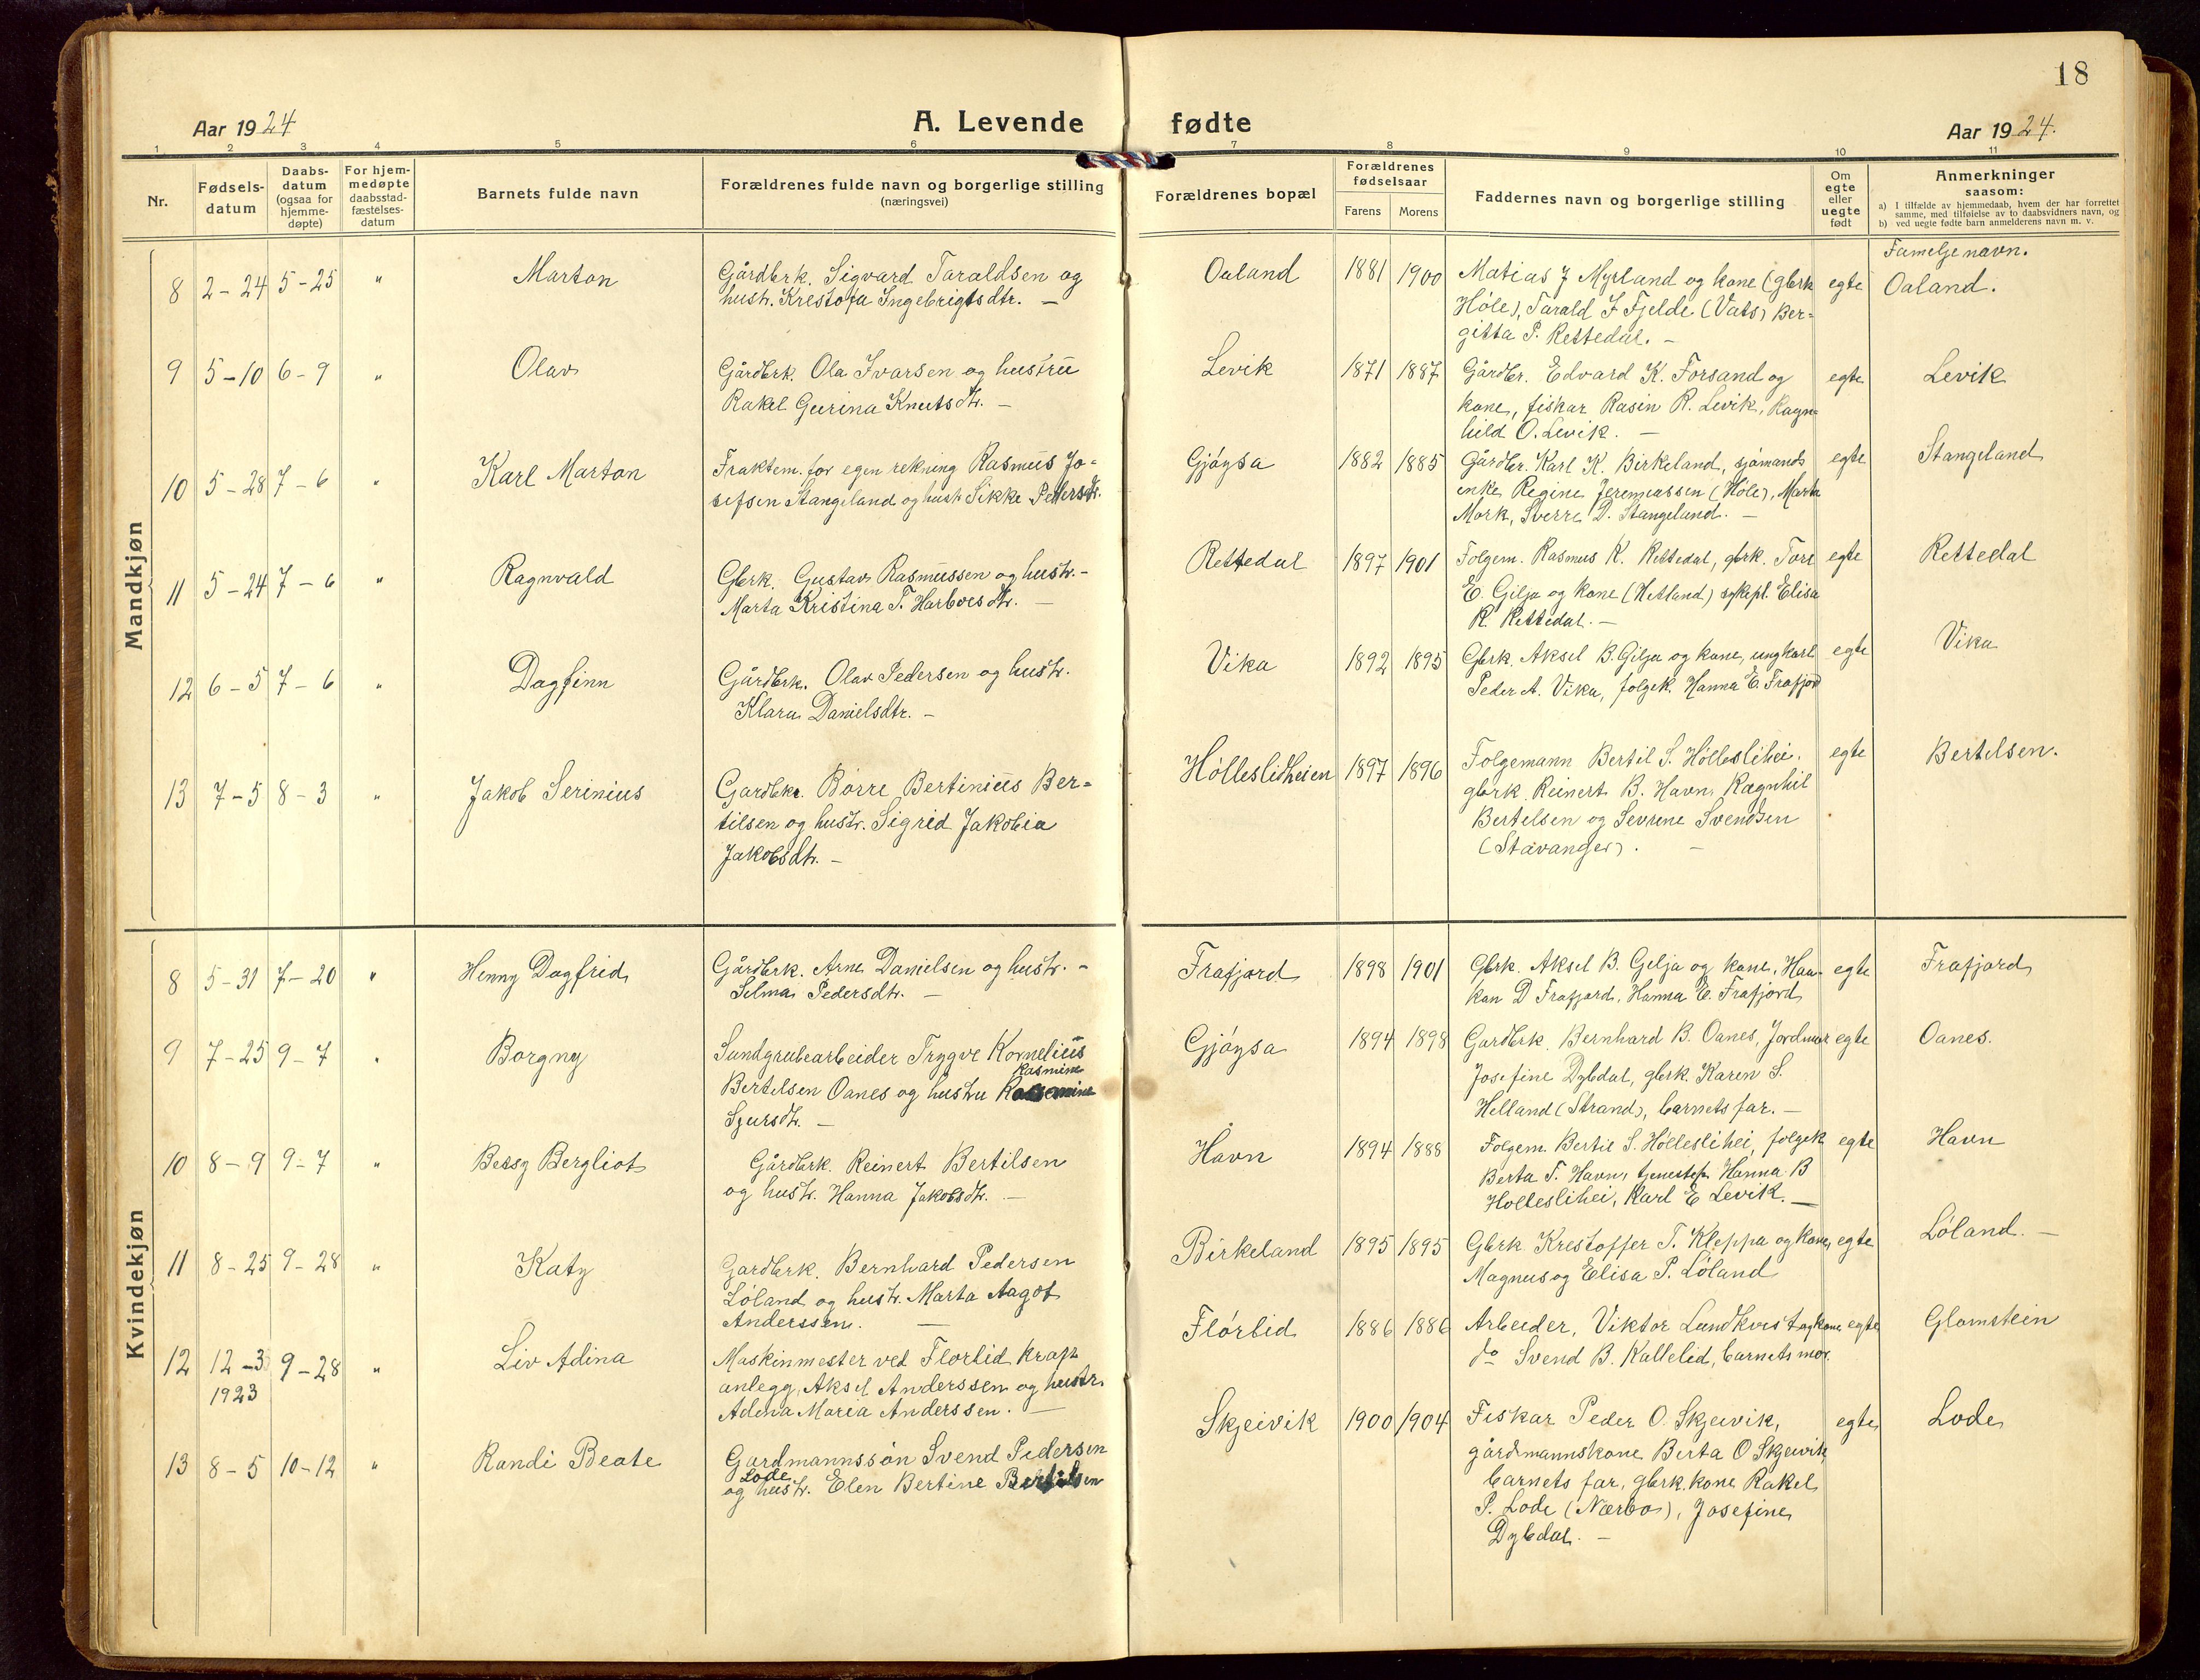 18
Aar 1924 A. Levende fødte Aar 1924.
1 2 3 4 5 6 7 8 9 10 11
Nr. Fødsels-datum Daabs-datum (ogsaa for hjemme-døpte) For hjem-medøpte daabsstad-fæstelses-datum Barnets fulde navn Forældrenes fulde navn og borgerlige stilling (næringsvei) Forældrenes bopæl Forældrenes fødselsaar Farens Morens Faddernes navn og borgerlige stilling Om egte eller uegte født Anmerkninger saasom:
a) I tilfælde av hjemmedaab, hvem der har forrettet samme, med tilføielse av to daabsvidners navn, og
b) ved uegte fødte barn anmelderens navn m. v.
Mandkjøn
Familjenavn.
8 2-24 5-25 " Marton Gårdbrk. Sigvard Taraldsen og Oaland 1881 1900 Matias J Myrland og kone (gbrk egte Oaland.
hustr. Krestofa Ingebrigtsdtr. — Høle), Tarald J Fjelde (Vats) Ber=
gitta P. Rettedal. —
9 5-10 6-9 " Olav Gårdbrk. Ola Ivarsen og hustru Levik 1871 1887 Gårdbr. Edvard K. Forsand og egte Levik
Rakel Gurina Knutsdtr. — kone, fiskar Rasin R. Levik, Ragn=
hild O. Levik. —
10 5-28 7-6 " Karl Marton Fraktem. for egen rekning Rasmus Jo= Gjøysa 1882 1885 Gårdbr. Karl K. Birkeland, sjømands egte Stangeland
sefsen Stangeland og hustr. Sikke Pedersdtr. enke Regine Jeremiassen (Høle), Marta
Mork, Sverre D. Stangeland. —
11 5-24 7-6 " Ragnvald Gbrk. Gustav Rasmussen og hustr. - Rettedal 1897 1901 Folgem. Rasmus K. Rettedal, gbrk. Tore egte Rettedal
Marta Kristina T. Harboesdtr. — E. Gilja og kone (Hetland) sykepl. Elisa
R. Rettedal. —
12 6-5 7-6 " Dagfinn Gårdbrk. Olav Pedersen og hustr. Vika 1892 1895 Gbrk. Aksel B. Gilja og kone, ungkarl egte Vika
Klara Danielsdtr. — Peder A. Vika, folgek. Hanna E. Frafjord
13 7-5 8-3 " Jakob Serinius Gardbkr. Børre Bertinius Ber= Hølleslidheien 1897 1896 Folgemann Bertil S. Hølleslihei, egte Bertelsen.
tilsen og hustr. Sigrid Jakobia gbrk Reinert B. Havn, Ragnhil
Jakobsdtr. — Bertelsen og Sevrine Svendsen
(Stavanger). —
Kvindekjøn
8 5-31 7-20 " Henny Dagfrid Gårdbrk. Arne Danielsen og hustr. - Frafjord 1898 1901 Gbrk. Aksel B. Gilja og kone, Haa- egte Frafjord
Selma Pedersdtr. — kon D Frafjord, Hanna E. Frafjord
9 7-25 9-7 " Borgny Sundgrubearbeider Trygve Kornelius Gjøysa 1894 1898 Gardbrk. Bernhard B. Oanes, Jordmor egte Oanes.
Rasmine
Bertelsen Oanes og hustru Josefine Dybdal, gbrk. Karen S.
Sjursdtr. — Helland (Strand), barnets far. —
10 8-9 9-7 " Betsy Bergliot Gårdbrk. Reinert Bertilsen Havn 1894 1888 Folgem. Bertil S. Hølleslihei, folgek egte Havn
og hustr. Hanna Jakobsdtr. — Berta T. Havn, tjenestep. Hanna B
Holleslihei, Karl E Levik. —
11 8-25 9-28 " Katy Gardbrk. Bernhard Pedersen Birkeland 1895 1895 Gbrk Krestoffer T. Kleppa og kone, egte Løland. —
Løland og hustr. Marta Aagot Magnus og Elisa P. Løland
Anderssen. —
12 12-3 1923 9-28 " Liv Adina Maskinmester ved Florlid kraft Flørlid 1886 1886 Arbeider, Viktor Lundkvist og kone egte Glomstein
anlegg, Aksel Anderssen og hustr. do Svend B. Kallelid, barnets mor.
Adina Maria Anderssen. —
13 8-5 10-12 " Randi Beate Gardmannssøn Svend Pedersen Skjeivik 1900 1904 Fiskar Peder O. Skjeivik, egte Lode
Lode
og hustr. Elen Bertine Bertilsen gårdmannskone Berta O Skjeivik,
barnets far, gbrk. kone Rakel
P. Lode (Nærbø), Josefine
Dybdal. —